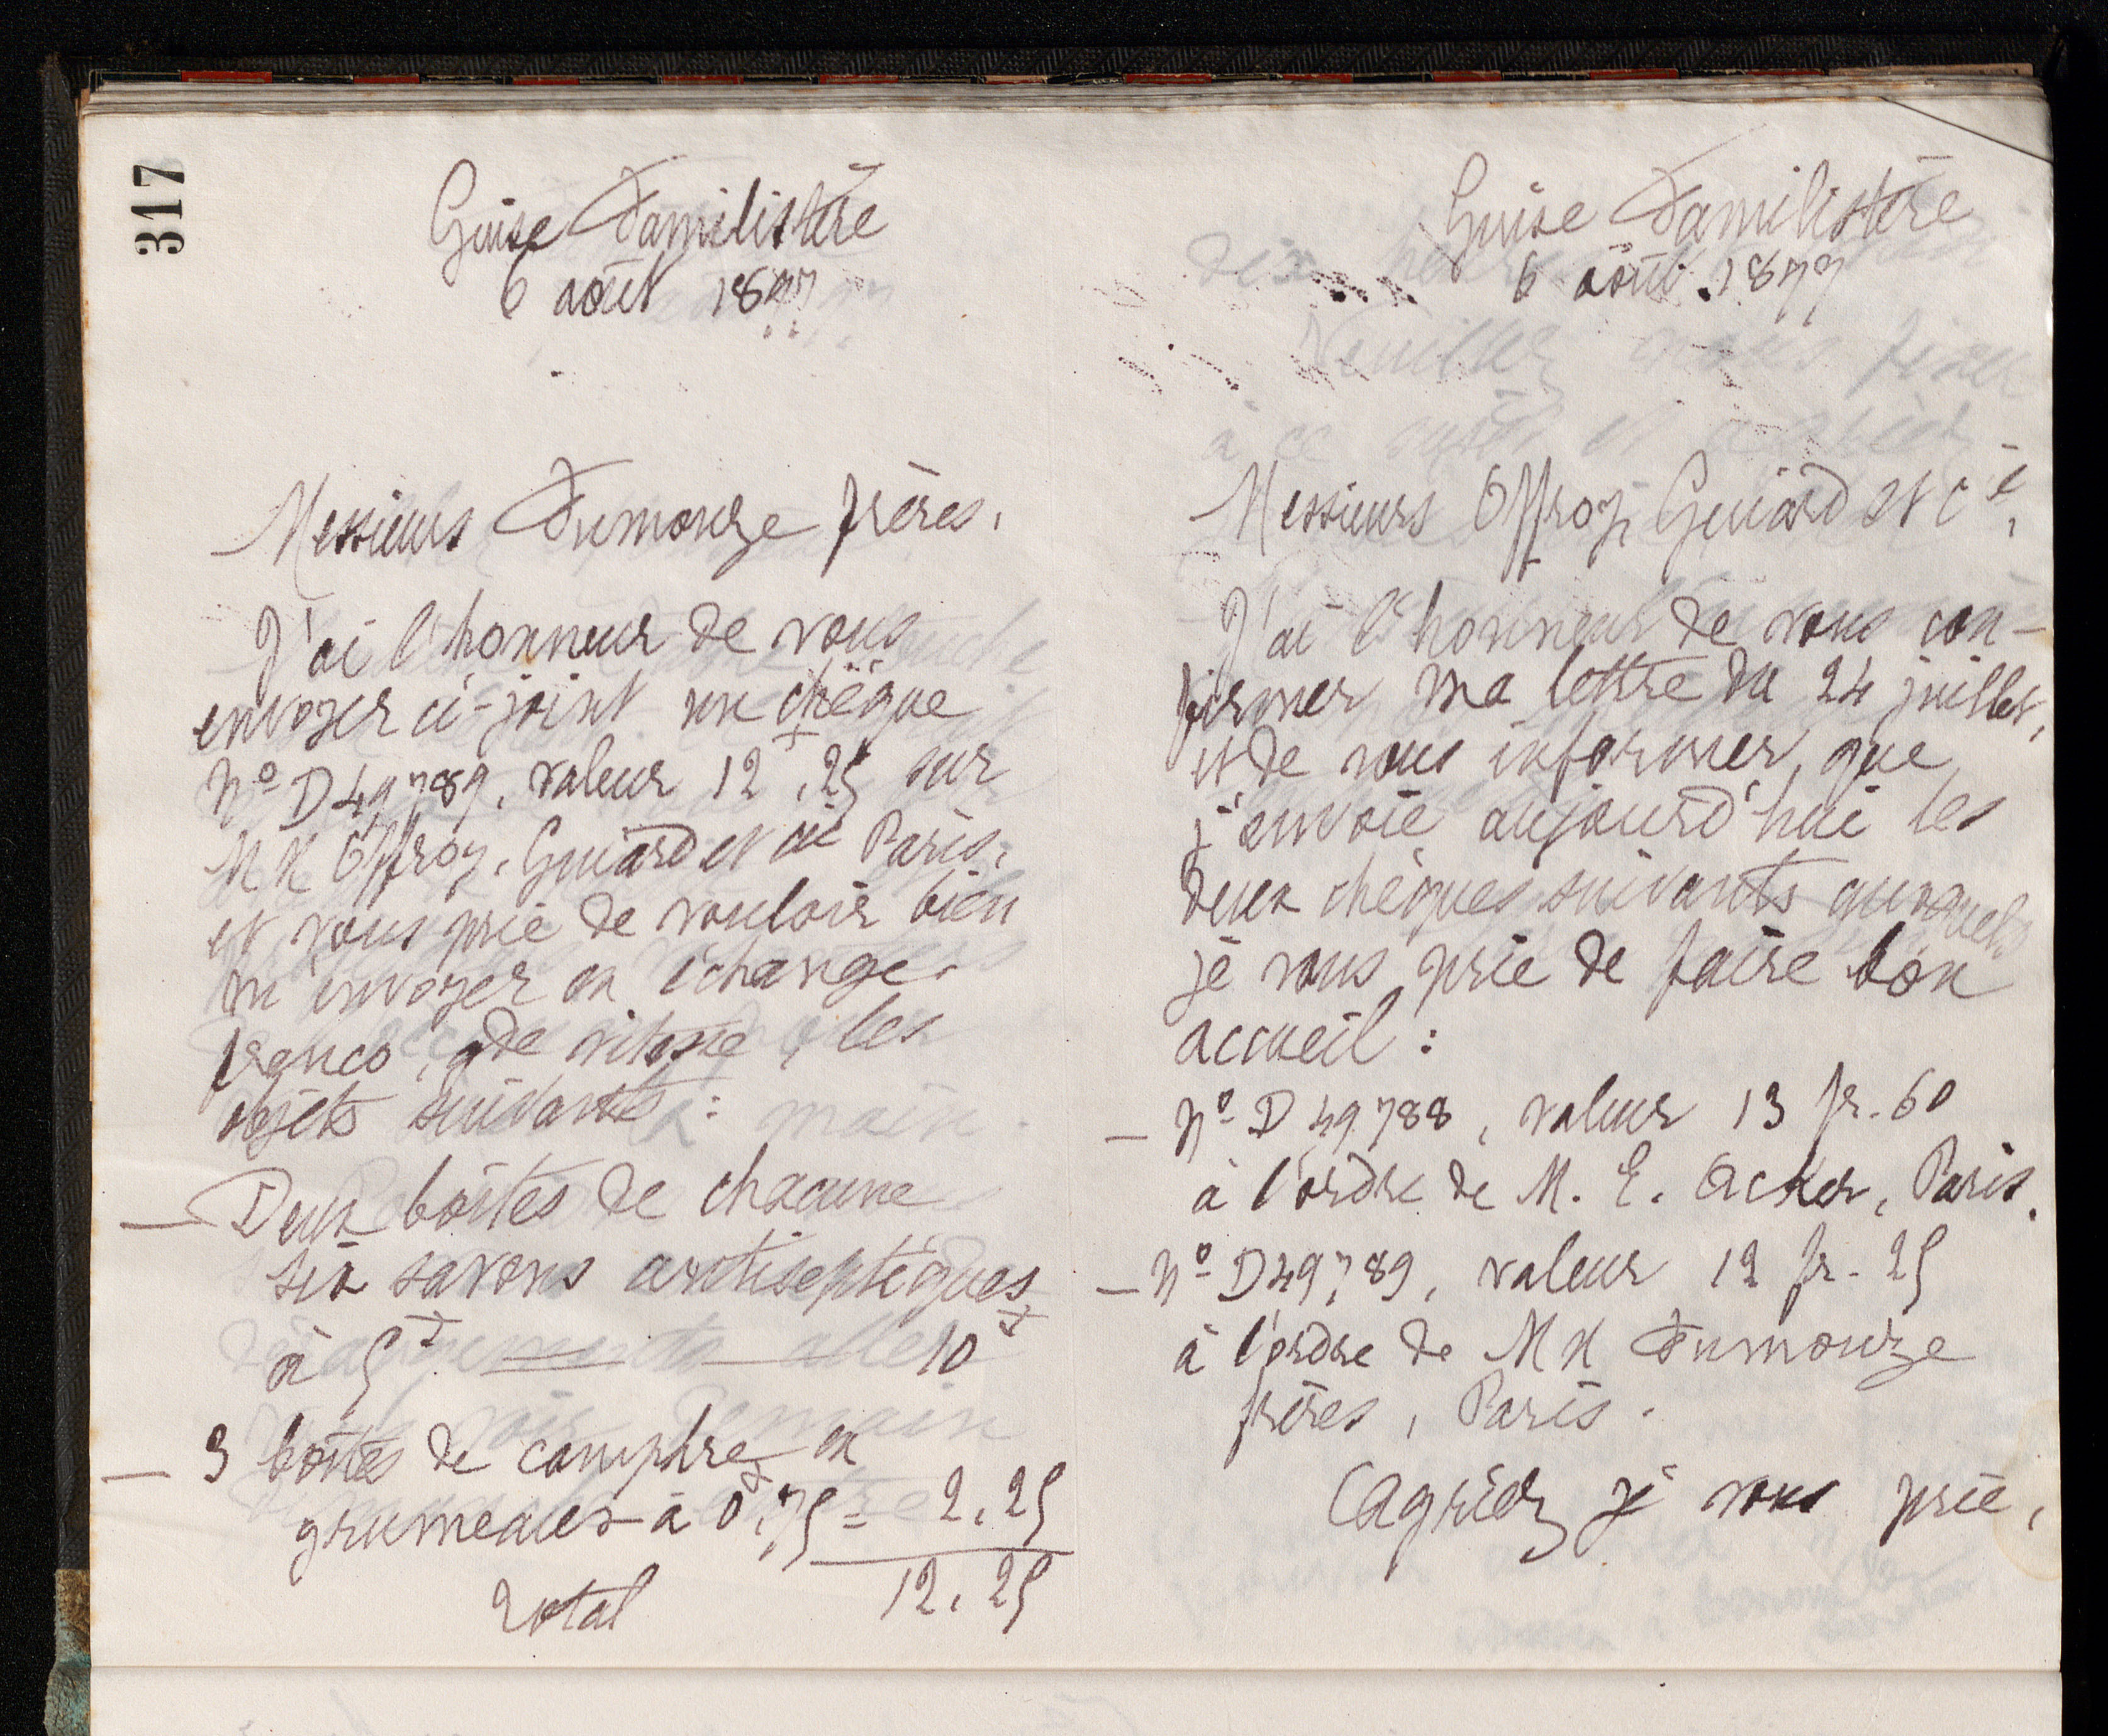 317
Guise Familistère
6 août 1897
Messieurs Fumouze frères,
J'ai l'honneur de vous
envoyer ci-joint un chèque
Nº D 49,789, valeur 12f,25 sur
MM Offroy, Guiard et Cie Paris,
et vous prie de vouloir bien
m'envoyer en échange,
franco, gde vitesse, les
objets suivants :
— Deux boîtes de chacune
six savons antiseptiques
à 5f. — — 10f
— 3 boîtes de camphre en
grumeaux à 0f,75 = 2,25
Total 12,25
Guise Familistère
6 août 1897
Messieurs Offroy, Guiard et Cie,
J'ai l'honneur de vous con-
firmer ma lettre du 24 juillet,
et de vous informer que
j'envoie aujourd'hui les
deux chèques suivants auxquels
je vous prie de faire bon
accueil :
— Nº D 49,788, valeur 13 fr. 60
à l'ordre de M. E. Acker, Paris.
— Nº D 49,789, valeur 12 fr. 25
à l'ordre de MM Fumouze
frères, Paris.
Agréez je vous prie,